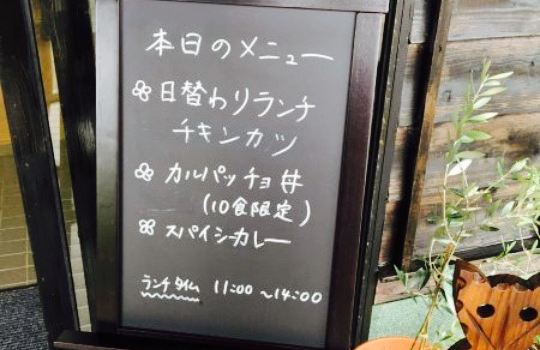 本日のメニュー
日替わりランチ
チキンカツ
カルパッチョ丼
(10食限定)
スパイシーカレー
ランチタイム 11:00 ~14:00